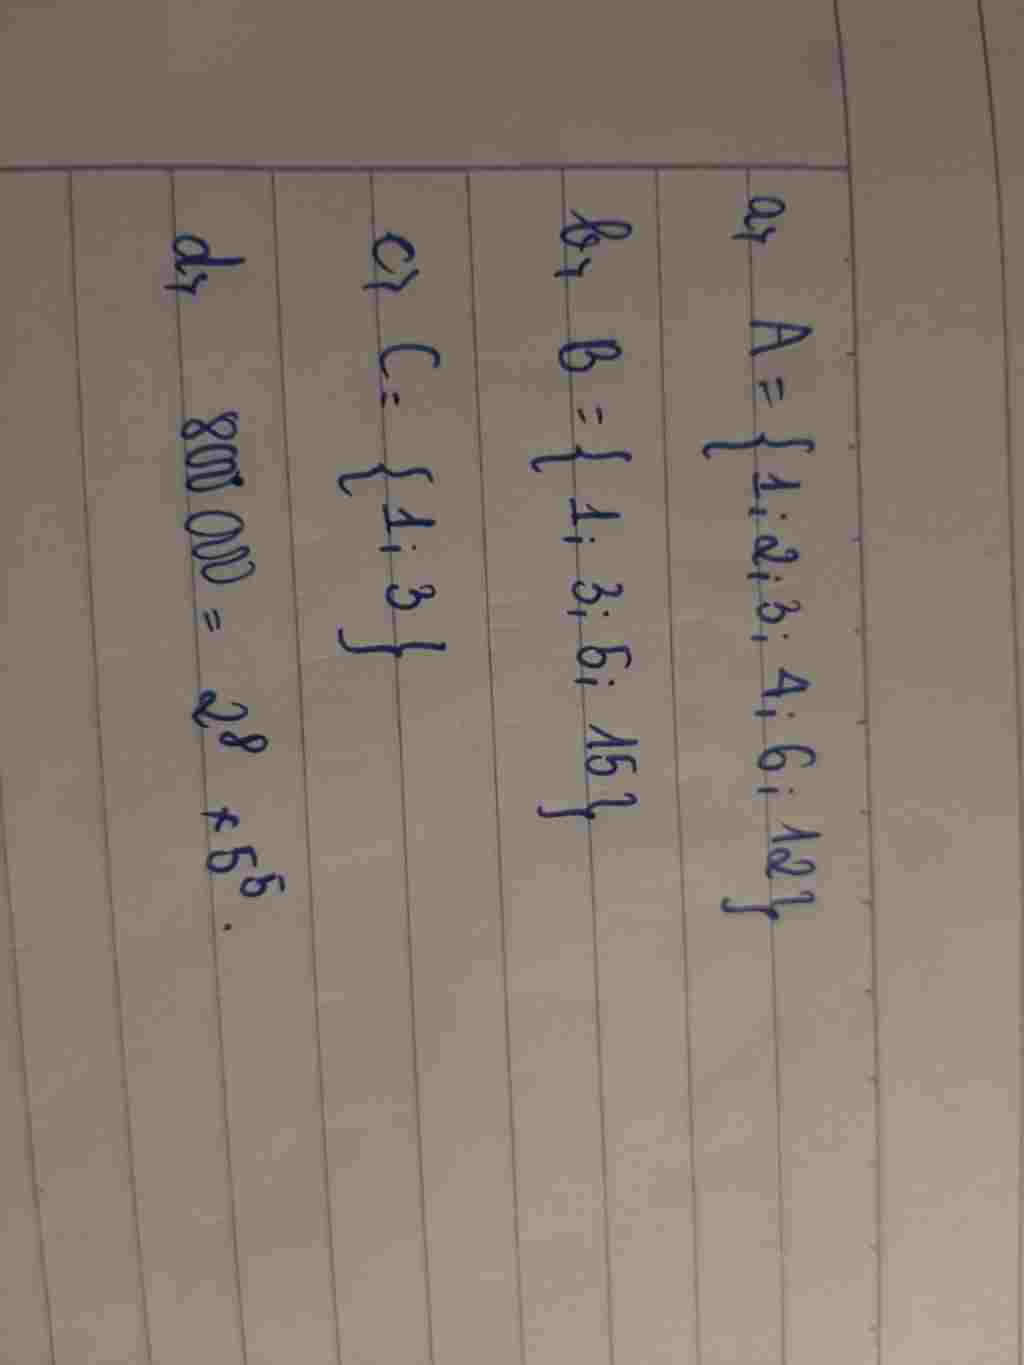 a, A = {1; 2; 3; 4; 6; 12}
b, B = {1; 3; 5; 15}
c, C = {1; 3}
d, 800 000 = 2⁸ × 5⁵.